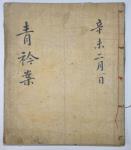 辛未二月一日
青衿案